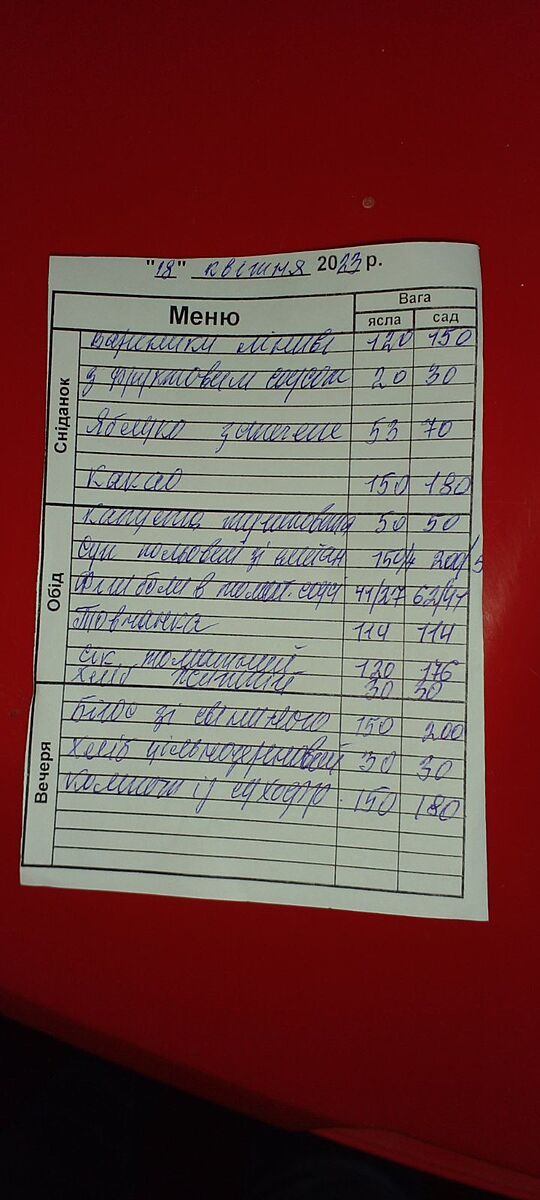 "18" квітня 2023 р.
Меню Вага
ясла сад
Сніданок
Вареники ліниві 120 150
з фруктовим соусом 20 30
Яблуко запечене 53 70
Какао 150 180
Обід
Капуста тушкована 50 50
Суп польовий зі 150/4 200/5
Фішболи в томат. соусі 41/27 62/41
Товчанка 114 114
Сік томатний 120 176
Хліб житній 30 50
Вечеря
Бігос зі свининою 150 200
Хліб цільнозерновий 30 30
Компот із сухофр. 150 180